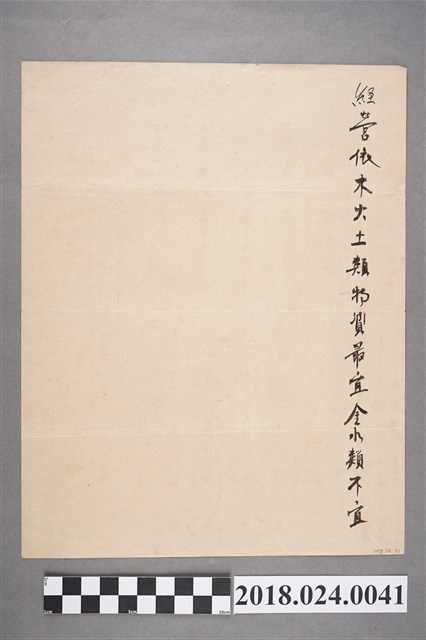 經營依木火土類物質最宜金水類不宜
2018.024.0041